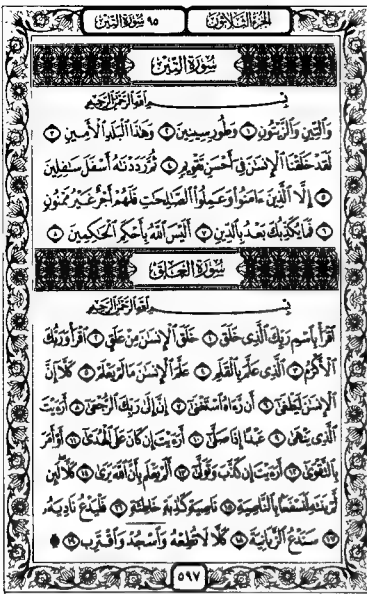 الجزء الثلاثون ٩٥ سورة التين
سورة التين
بسم الله الرحمن الرحيم
وَٱلتِّينِ وَٱلزَّيۡتُونِ ١ وَطُورِ سِينِينَ ٢ وَهَٰذَا ٱلۡبَلَدِ ٱلۡأَمِينِ ٣
لَقَدۡ خَلَقۡنَا ٱلۡإِنسَٰنَ فِيٓ أَحۡسَنِ تَقۡوِيمٖ ٤ ثُمَّ رَدَدۡنَٰهُ أَسۡفَلَ سَٰفِلِينَ
٥ إِلَّا ٱلَّذِينَ ءَامَنُواْ وَعَمِلُواْ ٱلصَّٰلِحَٰتِ فَلَهُمۡ أَجۡرٌ غَيۡرُ مَمۡنُونٖ
٦ فَمَا يُكَذِّبُكَ بَعۡدُ بِٱلدِّينِ ٧ أَلَيۡسَ ٱللَّهُ بِأَحۡكَمِ ٱلۡحَٰكِمِينَ ٨
سورة العلق
بسم الله الرحمن الرحيم
ٱقۡرَأۡ بِٱسۡمِ رَبِّكَ ٱلَّذِي خَلَقَ ١ خَلَقَ ٱلۡإِنسَٰنَ مِنۡ عَلَقٍ ٢ ٱقۡرَأۡ وَرَبُّكَ
ٱلۡأَكۡرَمُ ٣ ٱلَّذِي عَلَّمَ بِٱلۡقَلَمِ ٤ عَلَّمَ ٱلۡإِنسَٰنَ مَا لَمۡ يَعۡلَمۡ ٥ كَلَّآ إِنَّ
ٱلۡإِنسَٰنَ لَيَطۡغَىٰٓ ٦ أَن رَّءَاهُ ٱسۡتَغۡنَىٰٓ ٧ إِنَّ إِلَىٰ رَبِّكَ ٱلرُّجۡعَىٰٓ ٨ أَرَءَيۡتَ
ٱلَّذِي يَنۡهَىٰ ٩ عَبۡدًا إِذَا صَلَّىٰٓ ١٠ أَرَءَيۡتَ إِن كَانَ عَلَى ٱلۡهُدَىٰٓ ١١ أَوۡ أَمَرَ
بِٱلتَّقۡوَىٰٓ ١٢ أَرَءَيۡتَ إِن كَذَّبَ وَتَوَلَّىٰٓ ١٣ أَلَمۡ يَعۡلَم بِأَنَّ ٱللَّهَ يَرَىٰ ١٤ كَلَّا لَئِن
لَّمۡ يَنتَهِ لَنَسۡفَعَۢا بِٱلنَّاصِيَةِ ١٥ نَاصِيَةٖ كَٰذِبَةٍ خَاطِئَةٖ ١٦ فَلۡيَدۡعُ نَادِيَهُۥ
١٧ سَنَدۡعُ ٱلزَّبَانِيَةَ ١٨ كَلَّا لَا تُطِعۡهُ وَٱسۡجُدۡۤ وَٱقۡتَرِب ١٩
٥٩٧